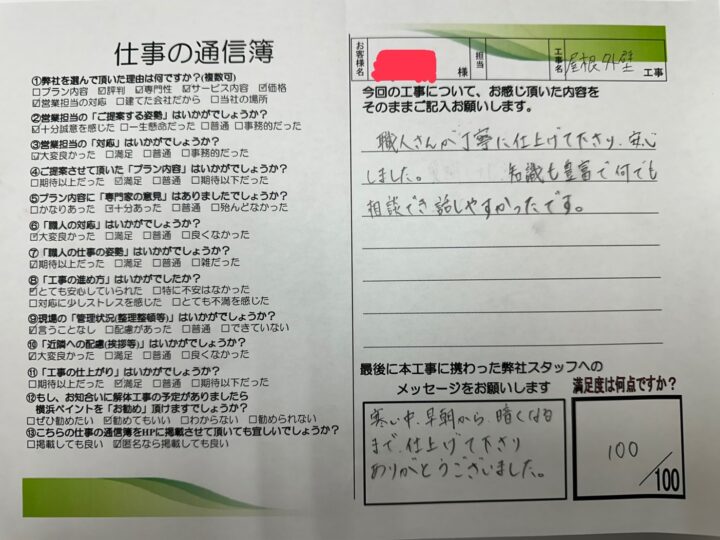 仕事の通信簿
①弊社を選んで頂いた理由は何ですか?(複数可)
□プラン内容 ☑評判 ☑専門性 ☑サービス内容 ☑価格
☑営業担当の対応 □建てた会社だから □当社の場所
②営業担当の「ご提案する姿勢」はいかがでしょうか?
☑十分誠意を感じた □一生懸命だった □普通 □事務的だった
③営業担当の「対応」はいかがでしょうか?
☑大変良かった □満足 □普通 □事務的だった
④ご提案させて頂いた「プラン内容」はいかがでしょうか?
□期待以上だった ☑満足 □普通 □期待以下だった
⑤プラン内容に「専門家の意見」はありましたでしょうか?
□かなりあった ☑十分あった □普通 □殆んどなかった
⑥「職人の対応」はいかがでしょうか?
☑大変良かった □満足 □普通 □良くなかった
⑦「職人の仕事の姿勢」はいかがでしょうか?
☑期待以上だった □満足 □普通 □雑だった
⑧「工事の進め方」はいかがでしたか?
☑とても安心していられた □特に不安はなかった
□対応に少しストレスを感じた □とても不満を感じた
⑨現場の「管理状況(整理整頓等)」はいかがでしょうか?
☑言うことなし □配慮があった □普通 □できていない
⑩「近隣への配慮(挨拶等)」はいかがでしょうか?
☑大変良かった □満足 □普通 □良くなかった
⑪「工事の仕上がり」はいかがでしょうか?
□期待以上だった ☑満足 □普通 □期待以下だった
⑫もし、お知合いに解体工事の予定がありましたら
横浜ペイントを「お勧め」頂けますでしょうか?
□ぜひ勧めたい ☑勧めてもいい □わからない □勧められない
⑬こちらの仕事の通信簿をHPに掲載させて頂いても宜しいでしょうか?
□掲載しても良い ☑匿名なら掲載しても良い
お客様名 様 担当 工事名 屋根外壁 工事
今回の工事について、お感じ頂いた内容を
そのままご記入お願いします。
職人さんが丁寧に仕上げて下さり、安心
しました。 知識も豊富で何でも
相談でき話しやすかったです。
最後に本工事に携わった弊社スタッフへの
メッセージをお願いします
寒い中、早朝から、暗くなる
まで、仕上げて下さり
ありがとうございました。
満足度は何点ですか?
100
/100